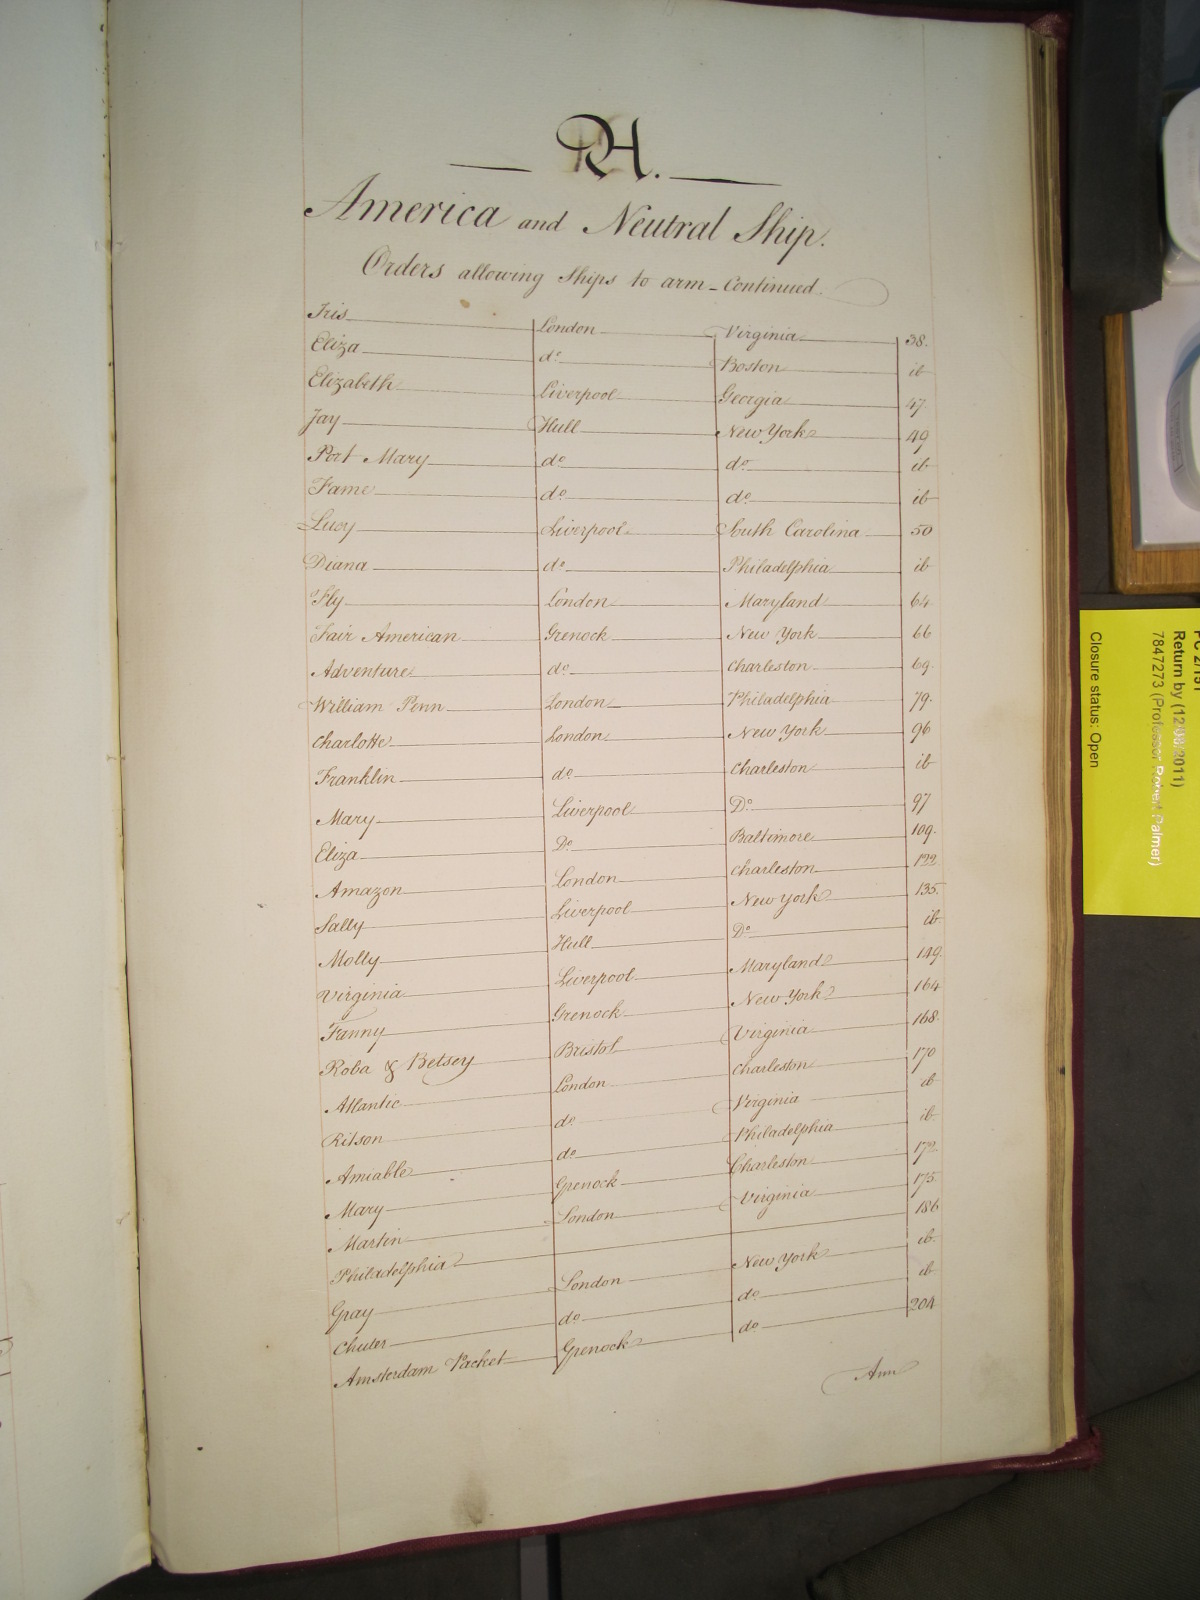 A.
America and Neutral Ship.
Orders allowing Ships to arm - Continued
Iris London Virginia 38.
Eliza do Boston ib
Elizabeth Liverpool Georgia 47
Jay Hull New York 49
Port Mary do do ib
Fame do do ib
Lucy Liverpool South Carolina 50
Diana do Philadelphia ib
Fly London Maryland 64
Fair American Grenock New York 66
Adventure do Charleston 69.
William Penn London Philadelphia 79.
Charlotte London New York 96
Franklin do Charleston ib
Mary Liverpool Do 97
Eliza Do Baltimore 109.
Amazon London Charleston 122
Sally Liverpool New York 135.
Molly Hull Do ib
Virginia Liverpool Maryland 149.
Fanny Grenock New York 164
Roba & Betsey Bristol Virginia 168.
Atlantic London Charleston 170
Ritson do Virginia ib
Amiable do Philadelphia ib
Mary Grenock Charleston 172.
Martin London Virginia 175.
Philadelphia 186
Gray London New York ib.
Chuter do do ib
Amsterdam Packet Grenock do 204
Ann
PC 2/151
Return by (12/08/2011)
7847273 (Professor Robert Palmer)
Closure status: Open